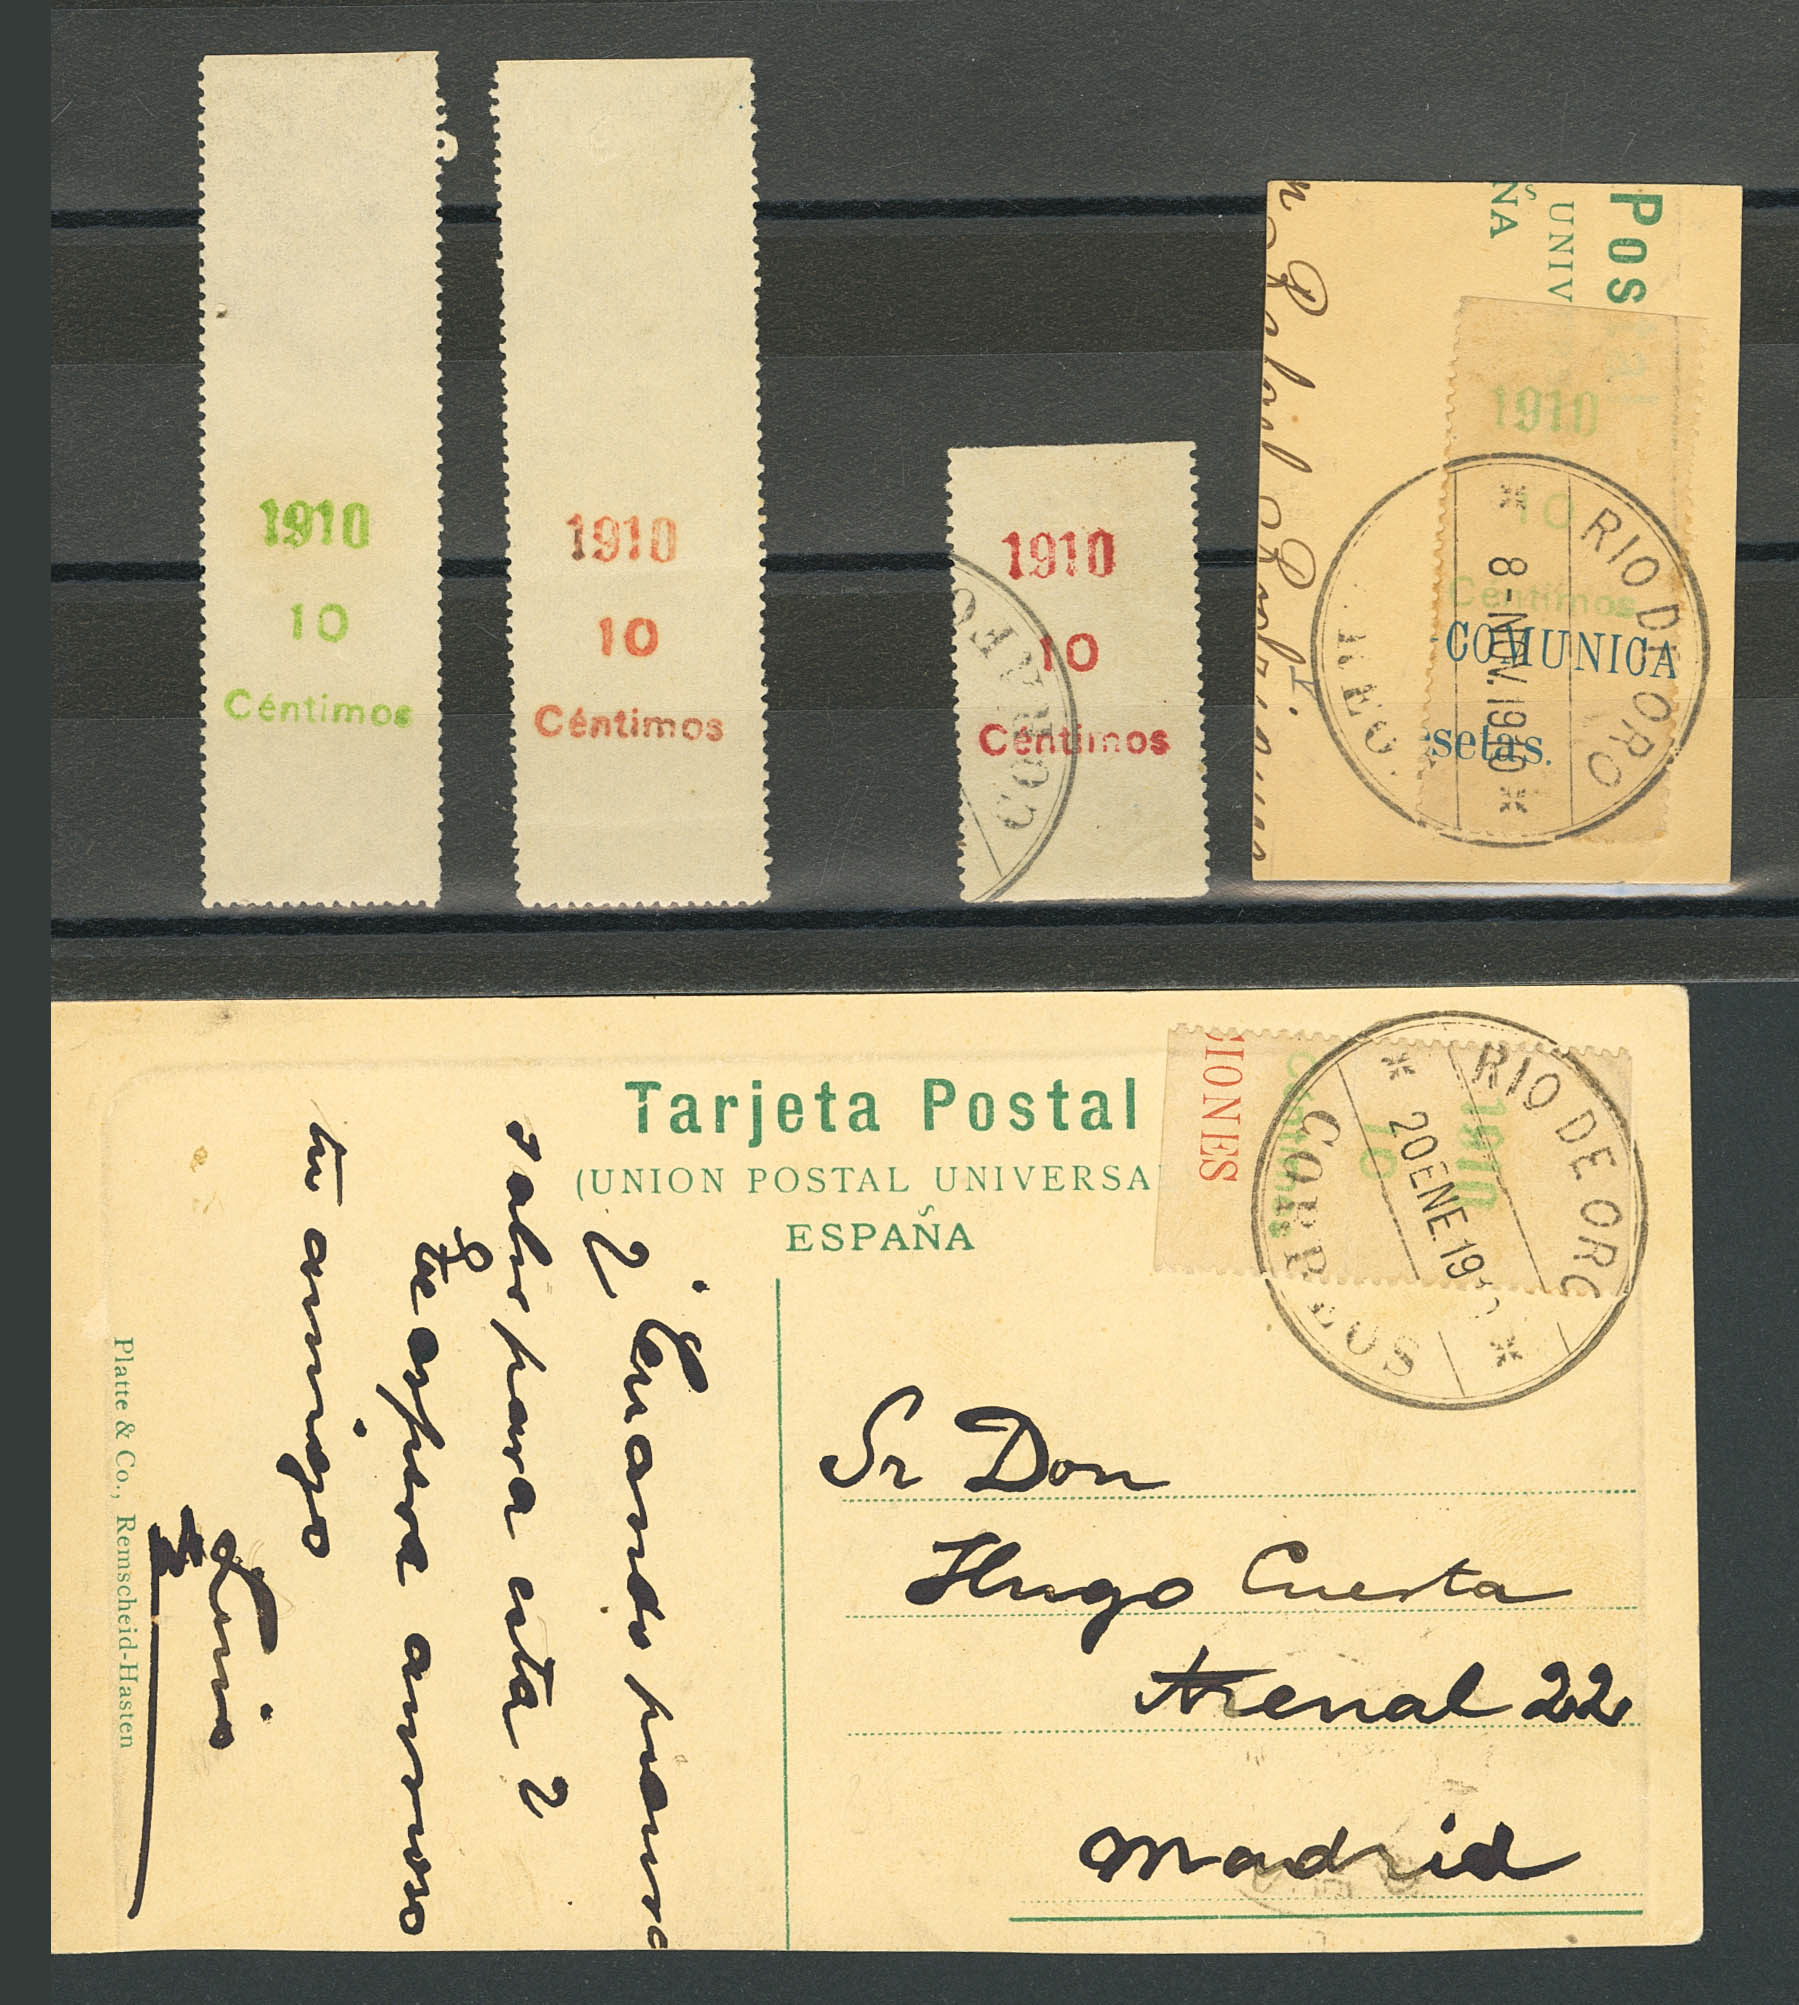 1910
10
Céntimos
1910
10
Céntimos
1910
10
Céntimos
CORREO
Pos
UNIV
ÑA
1910
10
Céntimos
COMUNICA
setas.
RIO DE ORO
8-NOV.1910
Tarjeta Postal
(UNION POSTAL UNIVERSA
ESPAÑA
CIONES
1910
10
Céntimos
RIO DE ORO
20 ENE 19
CORREOS
¿Cuando piensas
salir para esta?
Te espera ansioso
tu amigo
Luis
Platte & Co., Remscheid-Hasten
Sr Don
Hugo Cuesta
Arenal 22
Madrid